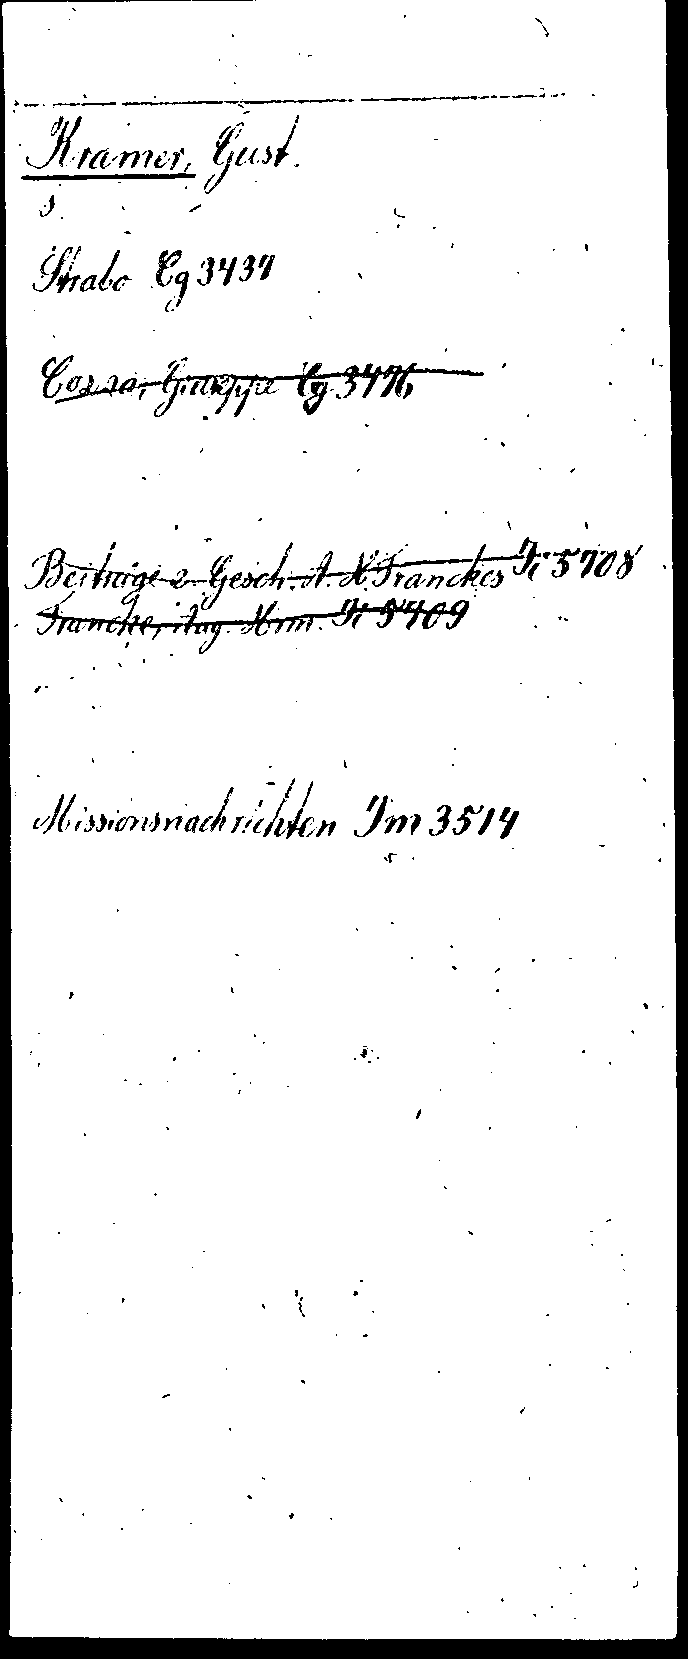 Kramer, Gust.
s.
Strabo Cg 3437
Cozza, Giuseppe Cg 3476
Beiträge z. Gesch. A. H. Franckes Ji 5708
Francke, Aug. Hrm. Ji 5709
Missionsnachrichten Jm 3514